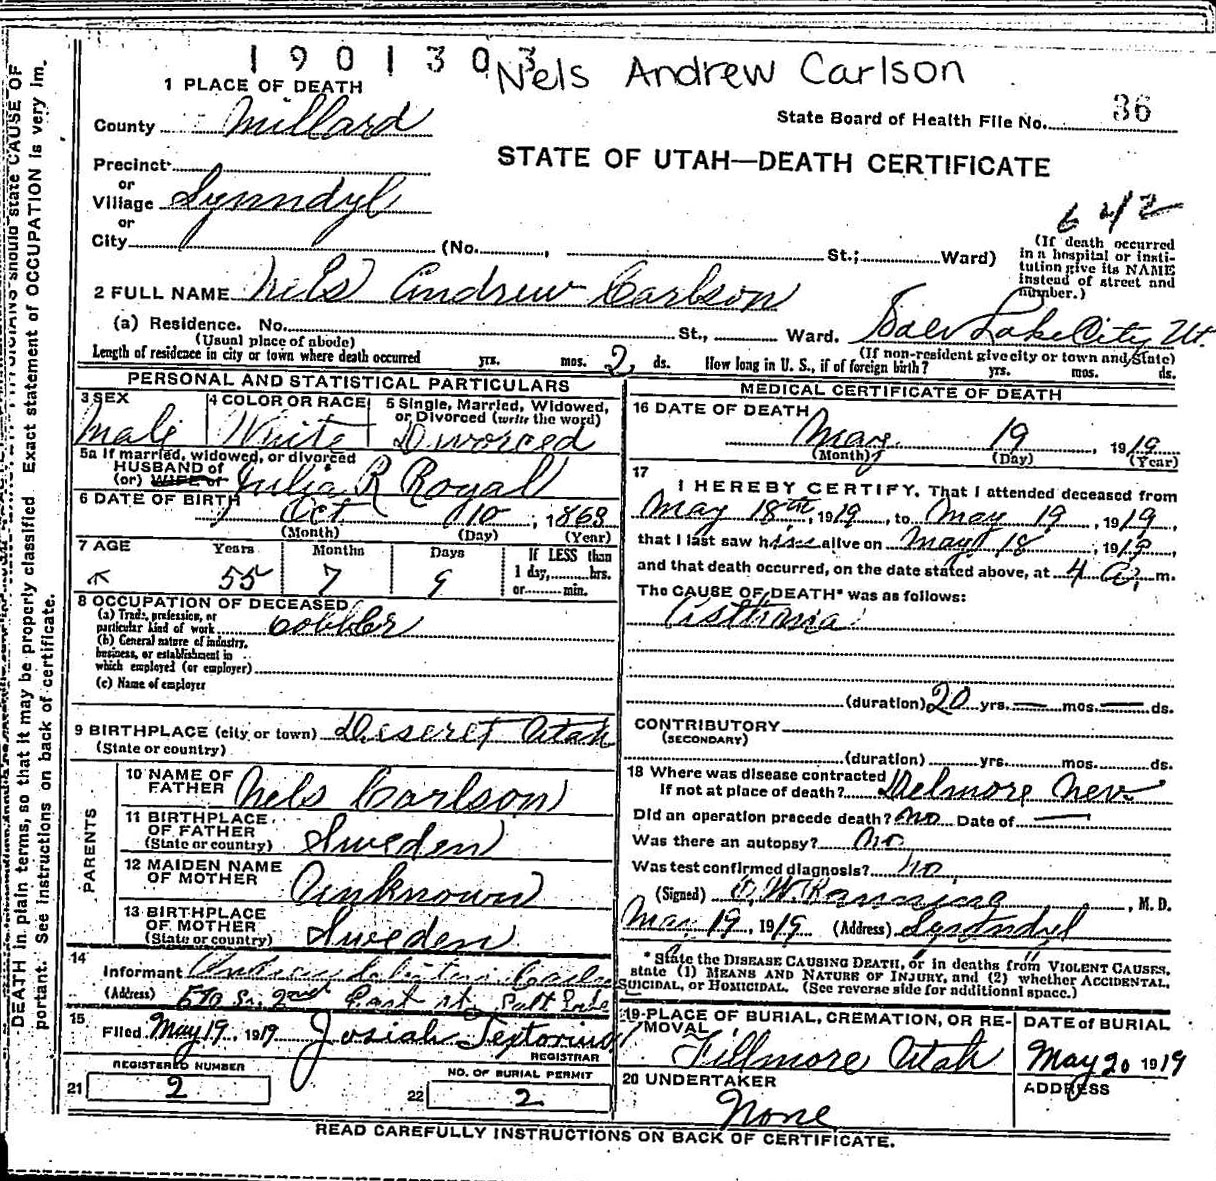 1901303
Nels Andrew Carlson
1 PLACE OF DEATH
County Millard
State Board of Health File No. 36
STATE OF UTAH—DEATH CERTIFICATE
Precinct
or
Village Lynndyl
or
City (No. , St.; Ward)
642
(If death occurred in a hospital or institution give its NAME instead of street and number.)
2 FULL NAME Nels Andrew Carlson
(a) Residence. No. St., Ward. Lake City Ut.
(Usual place of abode) (If non-resident give city or town and State)
Length of residence in city or town where death occurred yrs. mos. 2 ds. How long in U. S., if of foreign birth? yrs. mos. ds.
PERSONAL AND STATISTICAL PARTICULARS
3 SEX 4 COLOR OR RACE 5 Single, Married, Widowed, or Divorced (write the word)
Male White Divorced
5a If married, widowed, or divorced
HUSBAND of
(or) WIFE of Julia R Royal
6 DATE OF BIRTH
Oct 10, 1863
(Month) (Day) (Year)
7 AGE Years Months Days If LESS than
1 day, hrs.
55 7 9 or min.
8 OCCUPATION OF DECEASED
(a) Trade, profession, or
particular kind of work Cobbler
(b) General nature of industry,
business, or establishment in
which employed (or employer)
(c) Name of employer
9 BIRTHPLACE (city or town) Deseret Utah
(State or country)
PARENTS
10 NAME OF
FATHER Nels Carlson
11 BIRTHPLACE
OF FATHER
(State or country) Sweden
12 MAIDEN NAME
OF MOTHER Unknown
13 BIRTHPLACE
OF MOTHER
(State or country) Sweden
14
Informant
(Address) So. 2nd East St.
15
Filed May 19, 1919 Josiah
REGISTRAR
REGISTERED NUMBER NO. OF BURIAL PERMIT
21 2 22 2
MEDICAL CERTIFICATE OF DEATH
16 DATE OF DEATH
May 19, 1919
(Month) (Day) (Year)
17
I HEREBY CERTIFY, That I attended deceased from
May 18th, 1919, to May 19, 1919,
that I last saw him alive on May 18, 1919,
and that death occurred, on the date stated above, at 4 a. m.
The CAUSE OF DEATH* was as follows:
(duration) 20 yrs. — mos. — ds.
CONTRIBUTORY
(SECONDARY)
(duration) yrs. mos. ds.
18 Where was disease contracted
If not at place of death? Delmore Nev
Did an operation precede death? No Date of —
Was there an autopsy? no
Was test confirmed diagnosis? no
(Signed) , M. D.
May 19, 1919 (Address) Lynndyl
* State the DISEASE CAUSING DEATH, or in deaths from VIOLENT CAUSES,
state (1) MEANS AND NATURE OF INJURY, and (2) whether ACCIDENTAL,
SUICIDAL, or HOMICIDAL. (See reverse side for additional space.)
19 PLACE OF BURIAL, CREMATION, OR REMOVAL DATE OF BURIAL
Fillmore Utah May 20 1919
20 UNDERTAKER ADDRESS
None
READ CAREFULLY INSTRUCTIONS ON BACK OF CERTIFICATE.
PHYSICIANS should state CAUSE OF
DEATH in plain terms, so that it may be properly classified. Exact statement of OCCUPATION is very im-
portant. See instructions on back of certificate.